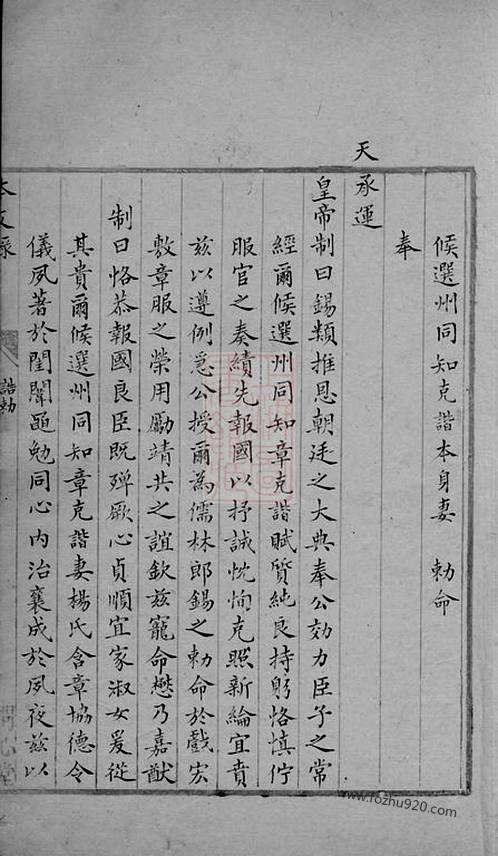 候選州同知克諧本身妻　勅命
奉
天承運
皇帝制曰錫類推恩朝廷之大典奉公効力臣子之常
經爾候選州同知章克諧賦質純良持躬恪慎佇
服官之奏績先報國以抒誠忱恂克照新綸宜賁
茲以遵例急公授爾為儒林郎錫之勅命於戲宏
敷章服之榮用勵靖共之誼欽茲寵命懋乃嘉猷
制曰恪恭報國良臣既殫厥心貞順宜家淑女爰從
其貴爾候選州同知章克諧妻楊氏含章協德令
儀夙著於閨闈黽勉同心內治襄成於夙夜茲以
誥勅
www.fozhu920.com